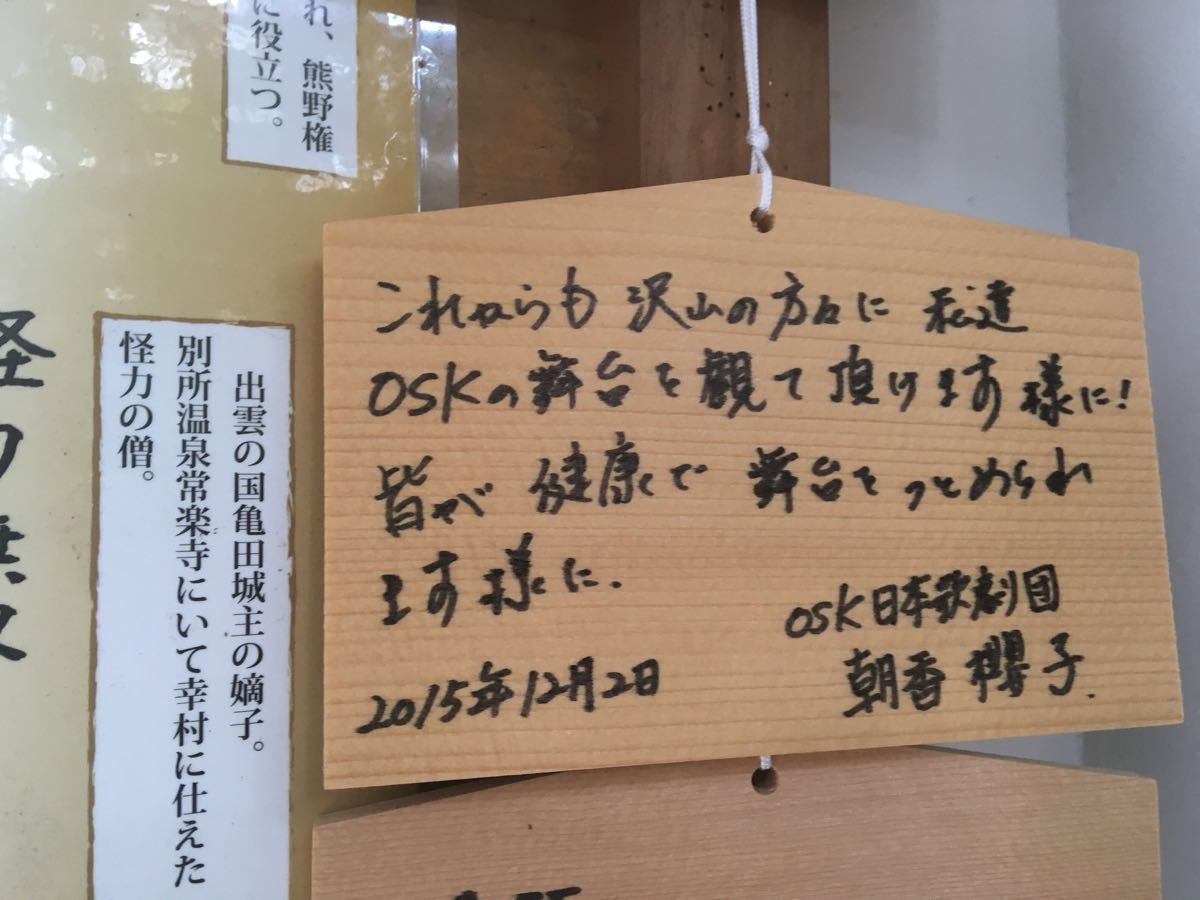 これからも 沢山の方々に 私達
OSKの舞台を観て頂けます様に!
皆が 健康で 舞台をつとめられ
ます様に.
OSK日本歌劇団
2015年12月2日
朝香櫻子.
れ、熊野権
に役立つ。
出雲の国亀田城主の嫡子。
別所温泉常楽寺にいて幸村に仕えた
怪力の僧。